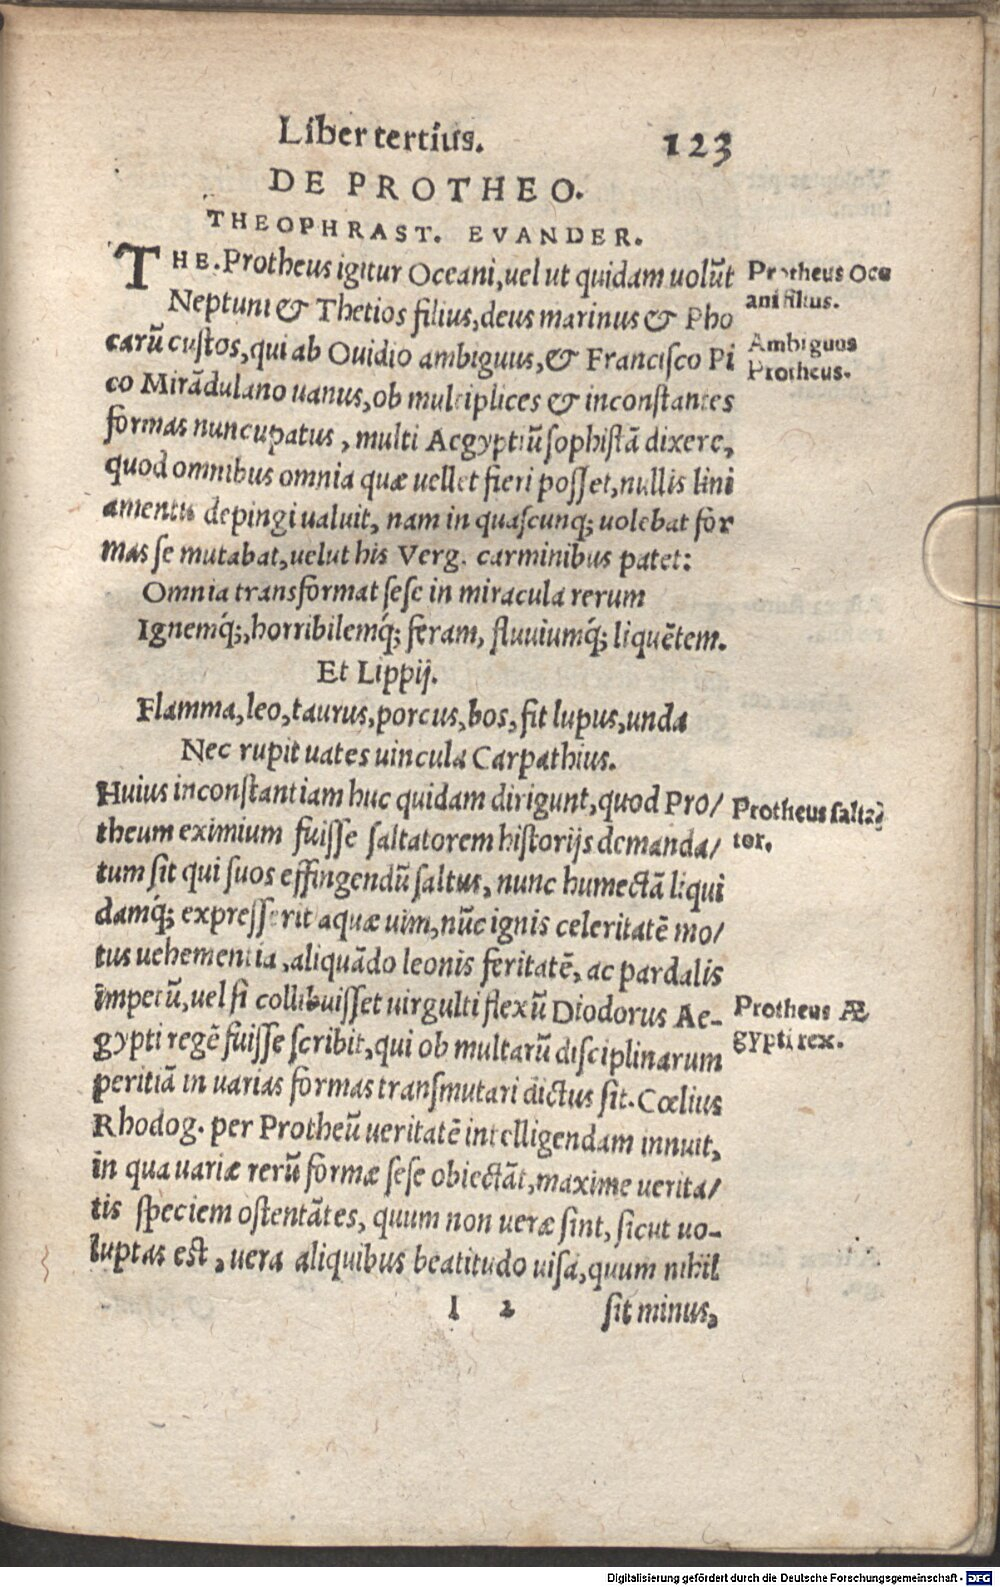 Liber tertius. 123
DE PROTHEO.
THEOPHRAST. EVANDER.
THE. Protheus igitur Oceani, uel ut quidam uolūt
Neptuni & Thetios filius, deus marinus & Pho
carū custos, qui ab Ouidio ambiguus, & Francisco Pi
co Mirādulano uanus, ob multiplices & inconstantes
formas nuncupatus, multi Aegyptiū sophistā dixere,
quod omnibus omnia quæ uellet fieri posset, nullis lini
amentis depingi ualuit, nam in quascunq; uolebat for
mas se mutabat, uelut his Verg. carminibus patet:
Omnia transformat sese in miracula rerum
Ignemq́;, horribilemq́; feram, fluuiumq́; liquētem.
Et Lippij.
Flamma, leo, taurus, porcus, bos, fit lupus, unda
Nec rupit uates uincula Carpathius.
Huius inconstantiam huc quidam dirigunt, quod Pro/
theum eximium fuisse saltatorem historijs demanda/
tum sit qui suos effingendū saltus, nunc humectā liqui
damq́; expresserit aquæ uim, nūc ignis celeritatē mo/
tus uehementia, aliquādo leonis feritatē, ac pardalis
impetū, uel si collibuisset uirgulti flexū Diodorus Ae-
gypti regē fuisse scribit, qui ob multarū disciplinarum
peritiā in uarias formas transmutari dictus sit. Cœlius
Rhodog. per Protheū ueritatē intelligendam innuit,
in qua uariæ rerū formæ sese obiectāt, maxime uerita/
tis speciem ostentātes, quum non ueræ sint, sicut uo-
luptas est, uera aliquibus beatitudo uisa, quum nihil
I 2 sit minus,
Protheus Oce
ani filius.
Ambiguus
Protheus.
Protheus salta
tor.
Protheus Æ
gypti rex.
Digitalisierung gefördert durch die Deutsche Forschungsgemeinschaft - DFG